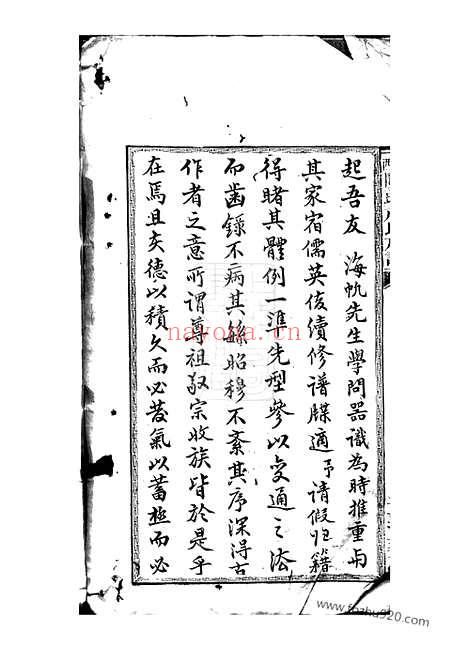 起吾友 海帆先生學問器識為時推重与
其家宿儒英俊續修譜牒適予請假归籍
得睹其體例一準先型參以变通之法
而齒錄不病其 昭穆不紊其序深得古
作者之意所謂尊祖敬宗收族皆於是乎
在焉且夫德以積久而必發氣以蓄極而必
nayona.cn
www.fozhu920.com